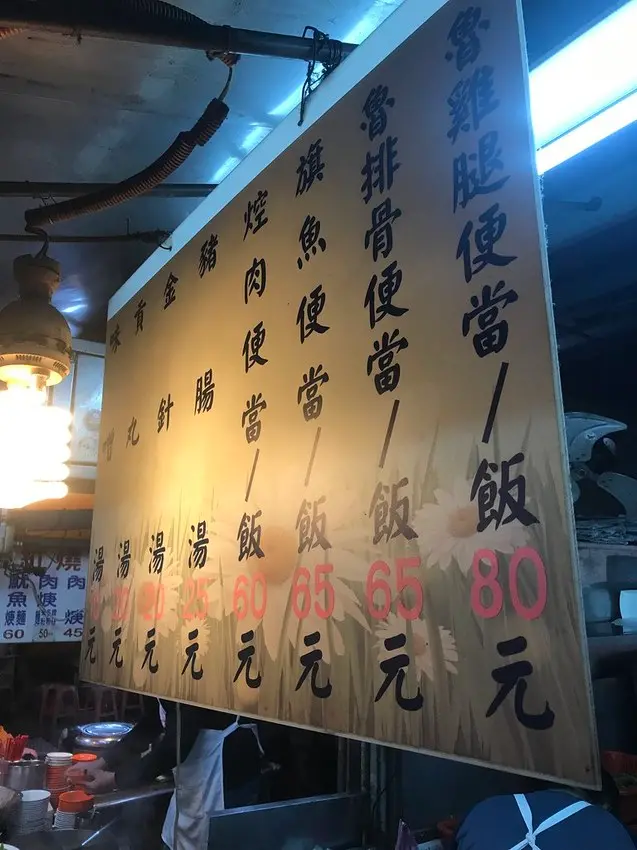 魯雞腿便當/飯80元
魯排骨便當/飯65元
旗魚便當/飯65元
焢肉便當/飯60元
豬腸湯25元
金針湯20元
貢丸湯20元
味噌湯 元
45
50
魷魚焿麵60